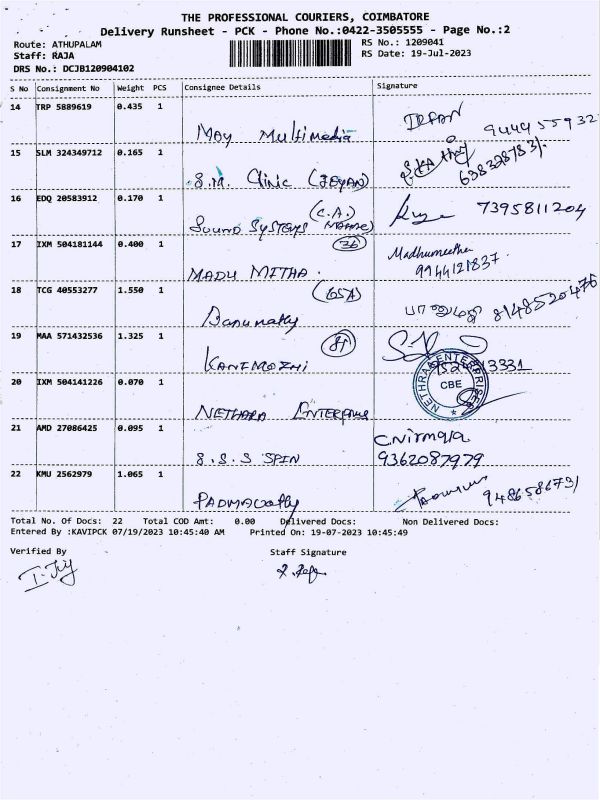 THE PROFESSIONAL COURIERS, COIMBATORE
Delivery Runsheet - PCK - Phone No.:0422-3505555 - Page No.:2
Route: ATHUPALAM
RS No.: 1209041
Staff: RAJA
RS Date: 19-Jul-2023
DRS No.: DCJB120904102
S No Consignment No Weight PCS Consignee Details Signature
14 TRP 5889619 0.435 1
May Multimedia IRFAN 9444155932
15 SLM 324349712 0.165 1
S.M. Clinic
16 EDQ 20583912 0.170 1
(C.A.)
Sound Systems 7395811204
17 IXM 504181144 0.400 1
76
MADU MITHA. Madhumeetha
9944121837.
18 TCG 40553277 1.550 1
(65A)
Banumathy பானுமதி 8148520476
19 MAA 571432536 1.325 1
81
KANIMOZHI
20 IXM 504141226 0.070 1
NETHARA Enterprise NETHRA ENTERPRISES CBE
21 AMD 27086425 0.095 1
S.S.S SPIN C.Nirmala
9362087979
22 KMU 2562979 1.065 1
PADMAvathy
Total No. Of Docs: 22 Total COD Amt: 0.00 Delivered Docs: Non Delivered Docs:
Entered By :KAVIPCK 07/19/2023 10:45:40 AM Printed On: 19-07-2023 10:45:49
Verified By Staff Signature